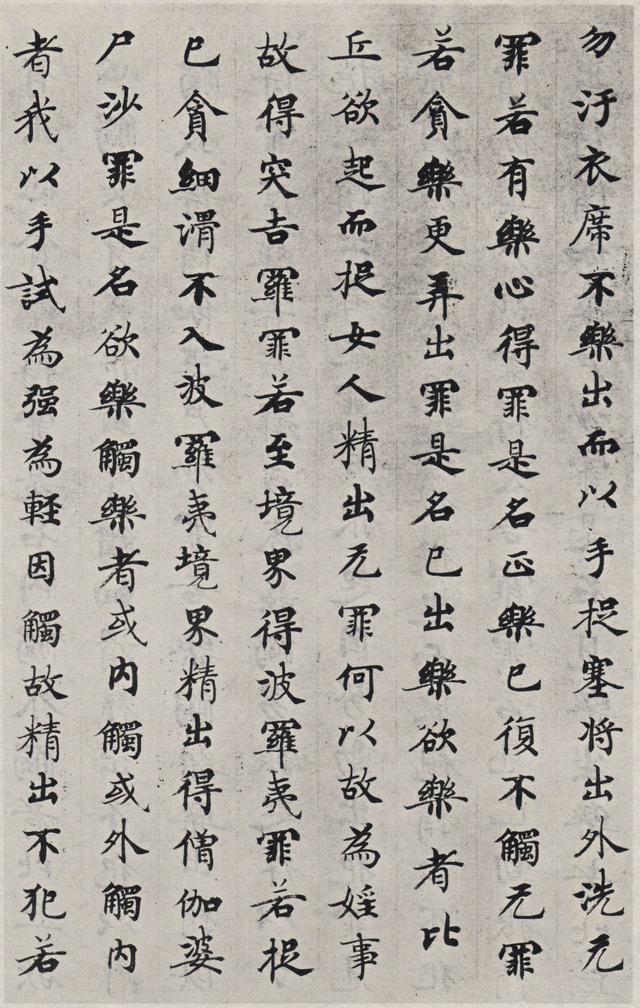 勿汙衣席不樂出而以手捉塞将出外洗无
罪若有樂心得罪是名正樂已復不觸无罪
若貪樂更弄出罪是名已出樂欲樂者比
丘欲起而捉女人精出无罪何以故為婬事
故得突吉羅罪若至境界得波羅夷罪若捉
已貪細滑不入波羅夷境界精出得僧伽婆
尸沙罪是名欲樂觸樂者或内觸或外觸内
者我以手試為强為輕因觸故精出不犯若